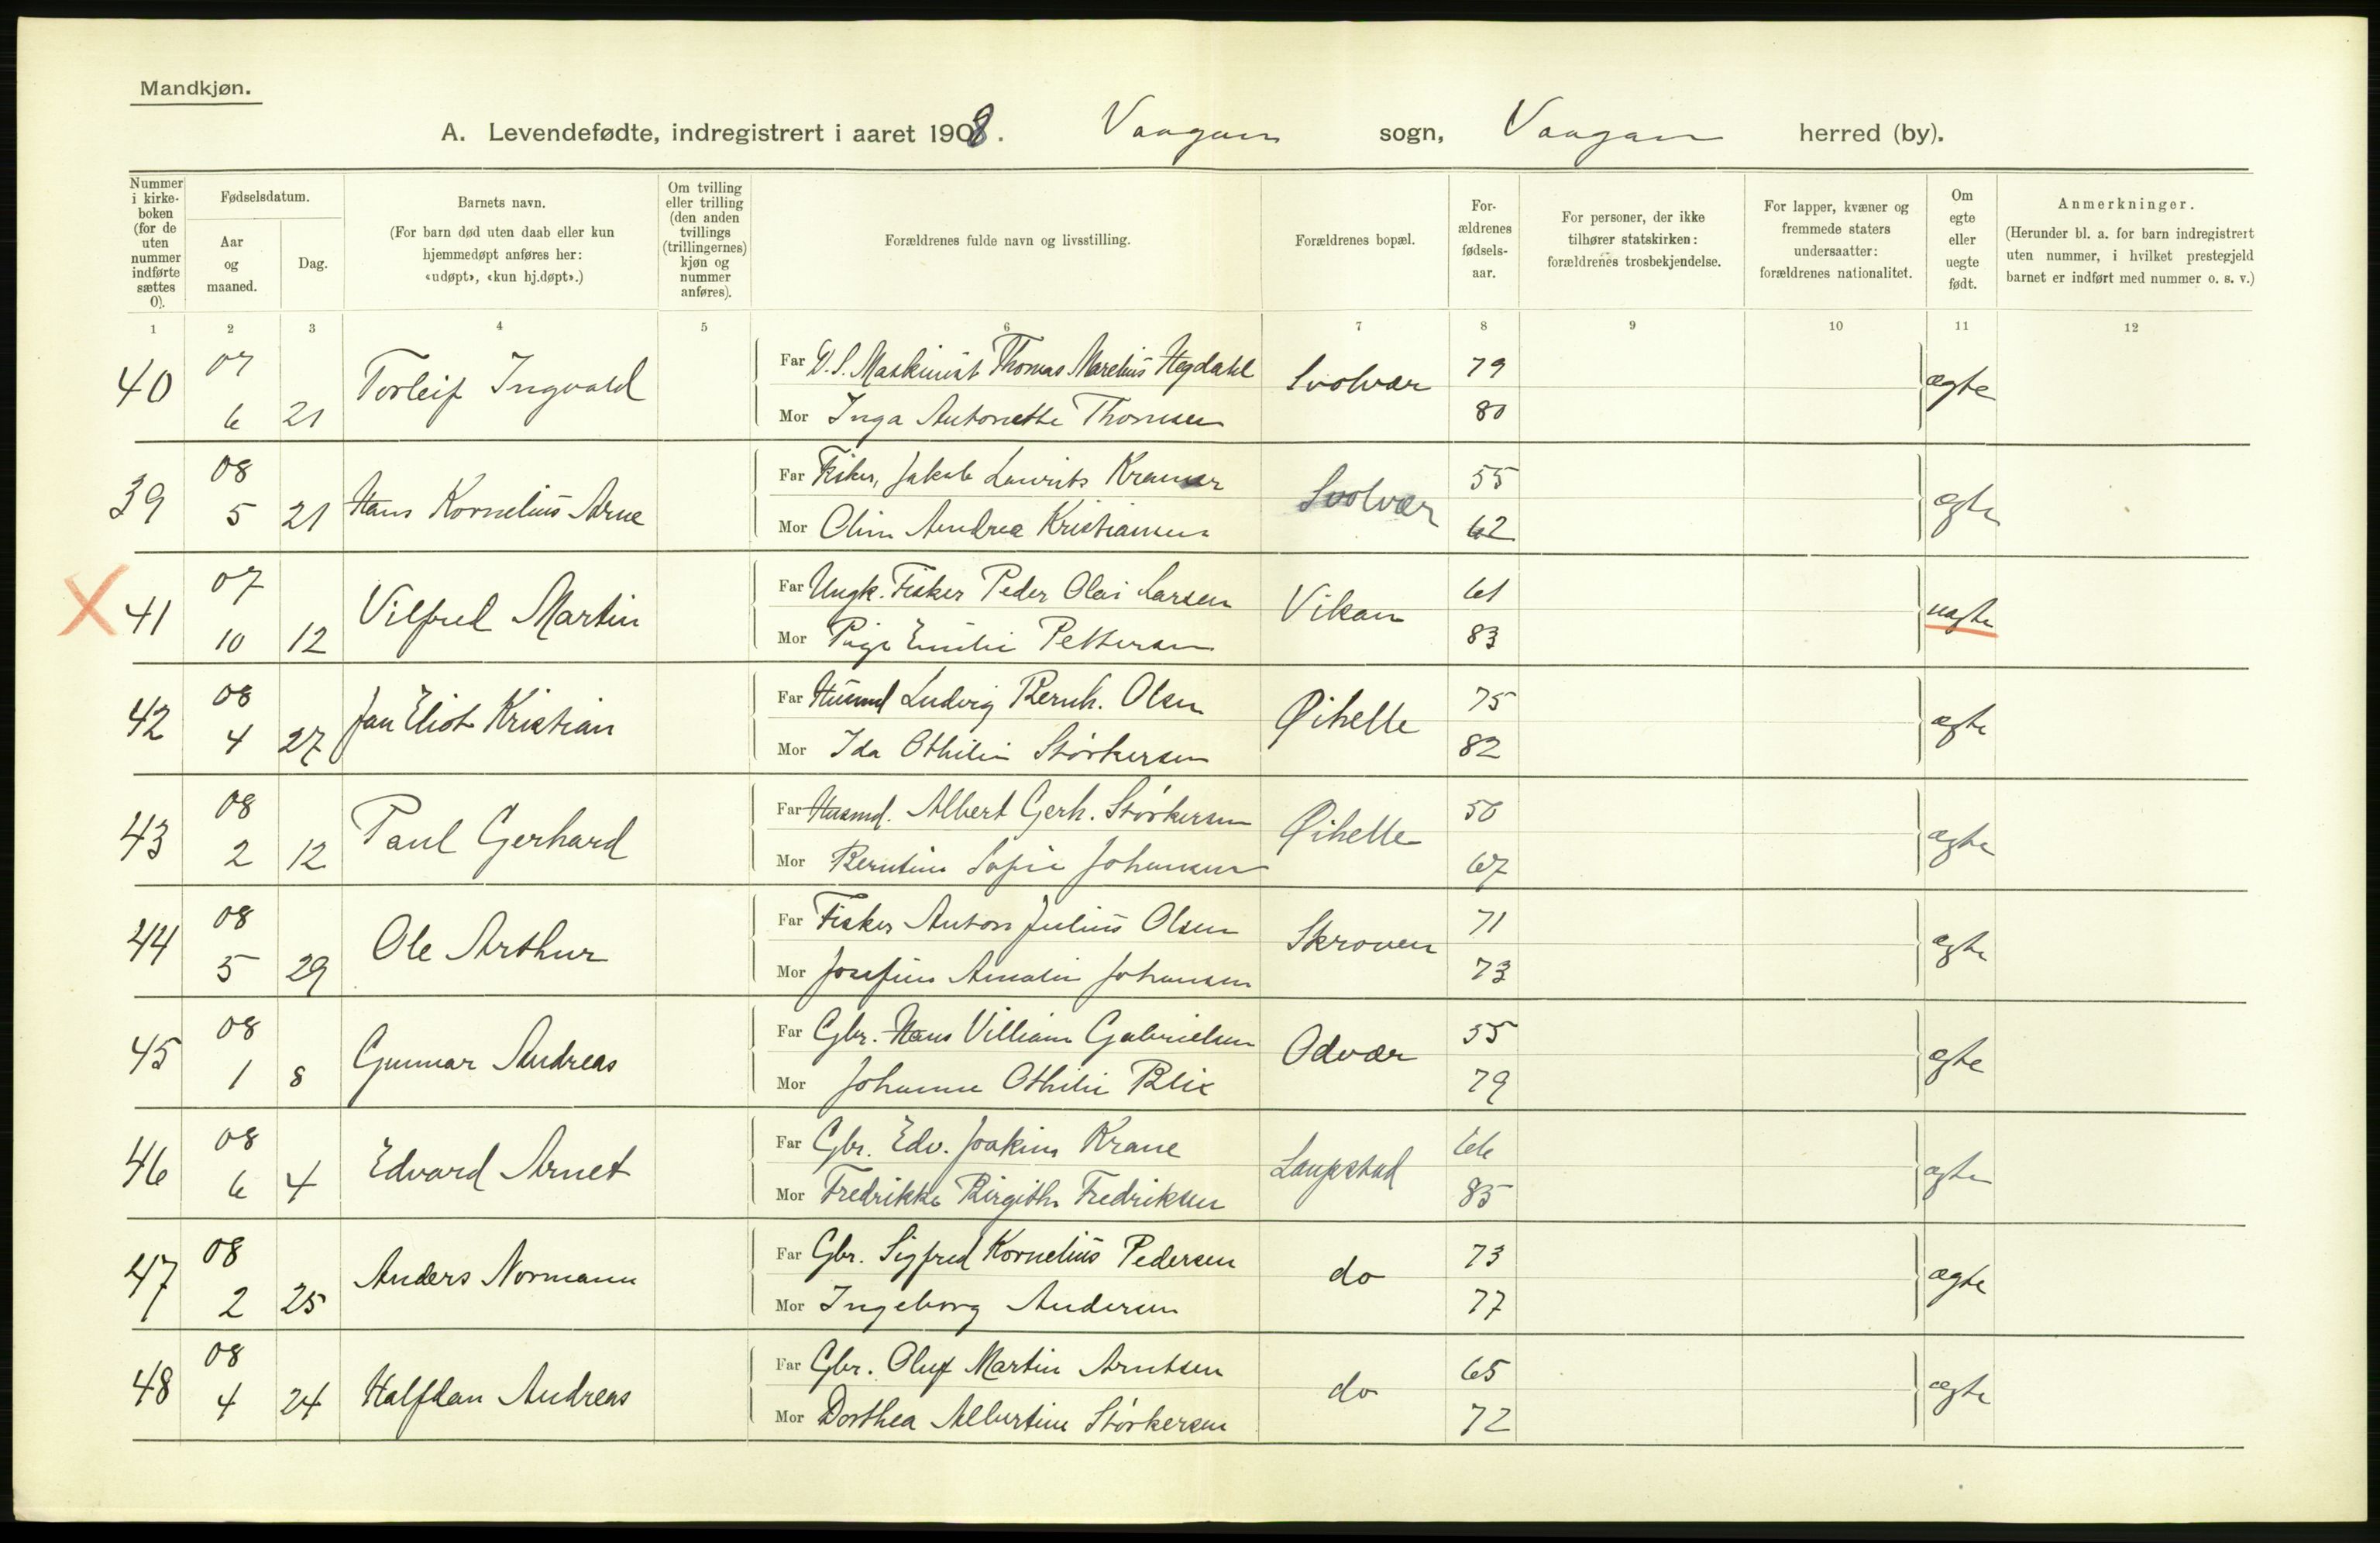 Mandkjøn.
A. Levendefødte, indregistrert i aaret 1908. Vaagan sogn, Vaagan herred (by).
Nummer i kirke-boken (for de uten nummer indførte sættes 0).
Fødselsdatum.
Aar og maaned.
Dag.
Barnets navn.
(For barn død uten daab eller kun hjemmedøpt anføres her: «udøpt», «kun hj.døpt».)
Om tvilling eller trilling (den anden tvillings (trillingernes) kjøn og nummer anføres).
Forældrenes fulde navn og livsstilling.
Forældrenes bopæl.
For-ældrenes fødsels-aar.
For personer, der ikke tilhører statskirken: forældrenes trosbekjendelse.
For lapper, kvæner og fremmede staters undersaatter: forældrenes nationalitet.
Om egte eller uegte født.
Anmerkninger.
(Herunder bl. a. for barn indregistrert uten nummer, i hvilket prestegjeld barnet er indført med nummer o. s. v.)
1 2 3 4 5 6 7 8 9 10 11 12
40 07 6 21 Torleif Ingvald Far D.S. Maskinist Thomas Marelius Hegdahl Svolvær 79 ægte
Mor Inga Antonette Thomsen 80
39 08 5 21 Hans Kornelius Arne Far Fisker, Jakob Laurits Kramer Svolvær 55 ægte
Mor Olin Andrea Kristiansen 62
X 41 07 10 12 Vilfred Martin Far Ungk. Fisker Peder Olai Larsen Vikan 61 uægte
Mor Pige Emilie Pettersen 83
42 08 4 27 Jan Eliot Kristian Far Husmd Ludvig Bernh. Olsen Øihelle 75 ægte
Mor Ida Othilie Størkersen 82
43 08 2 12 Paul Gerhard Far Husmd. Albert Gerh. Størkersen Øihelle 50 ægte
Mor Berntine Sofie Johansen 67
44 08 5 29 Ole Arthur Far Fisker Anton Julius Olsen Skroven 71 ægte
Mor Josefine Amalie Johansen 73
45 08 1 8 Gunnar Andreas Far Gbr. Hans Villiam Gabrielsen Odvær 55 ægte
Mor Johanne Othilie Blix 79
46 08 6 4 Edvard Arnet Far Gbr. Edv. Joakim Krane Laupstad 66 ægte
Mor Fredrikke Birgithe Fredriksen 85
47 08 2 25 Anders Normann Far Gbr. Sigfred Kornelius Pedersen do 73 ægte
Mor Ingeborg Andersen 77
48 08 4 24 Halfdan Andreas Far Gbr. Oluf Martin Arntsen do 65 ægte
Mor Dorthea Albertine Størkersen 72